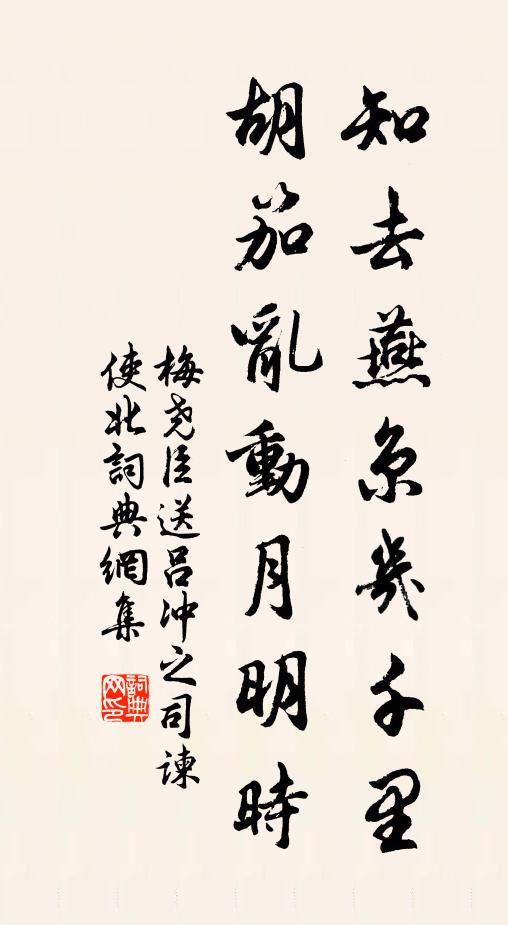 知去燕京幾千里
胡笳亂動月明時
梅堯臣送呂沖之司諫
使北詞典網集
詞典
网印